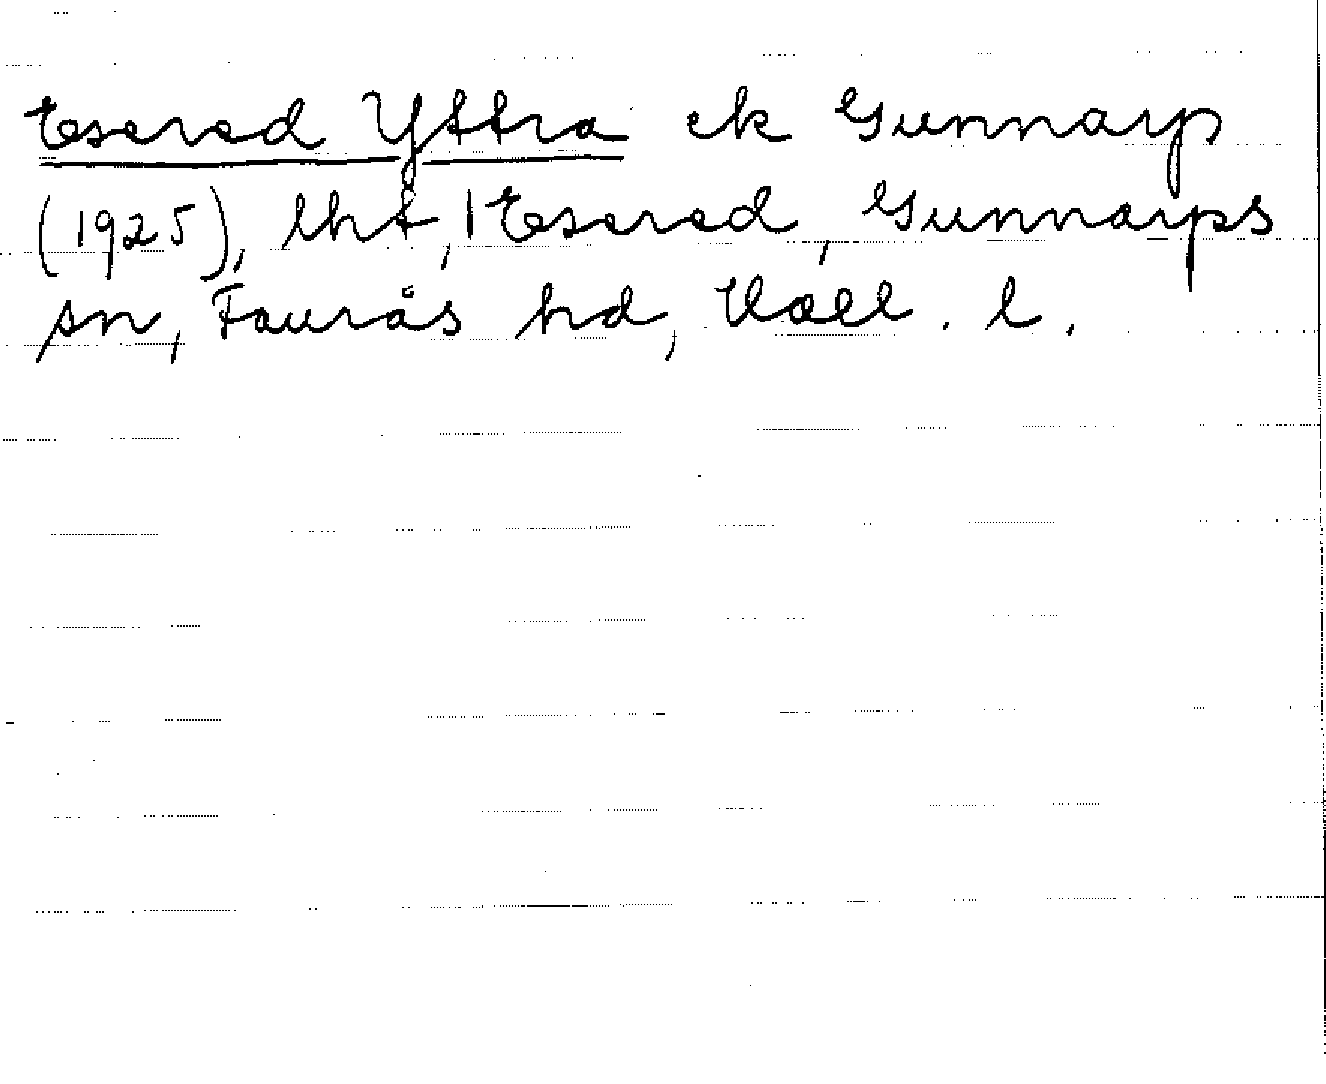 Esered Yttra ek Gunnarp
(1925), lht, 1 Esered, Gunnarps
sn, Faurås hd, Hall. l.